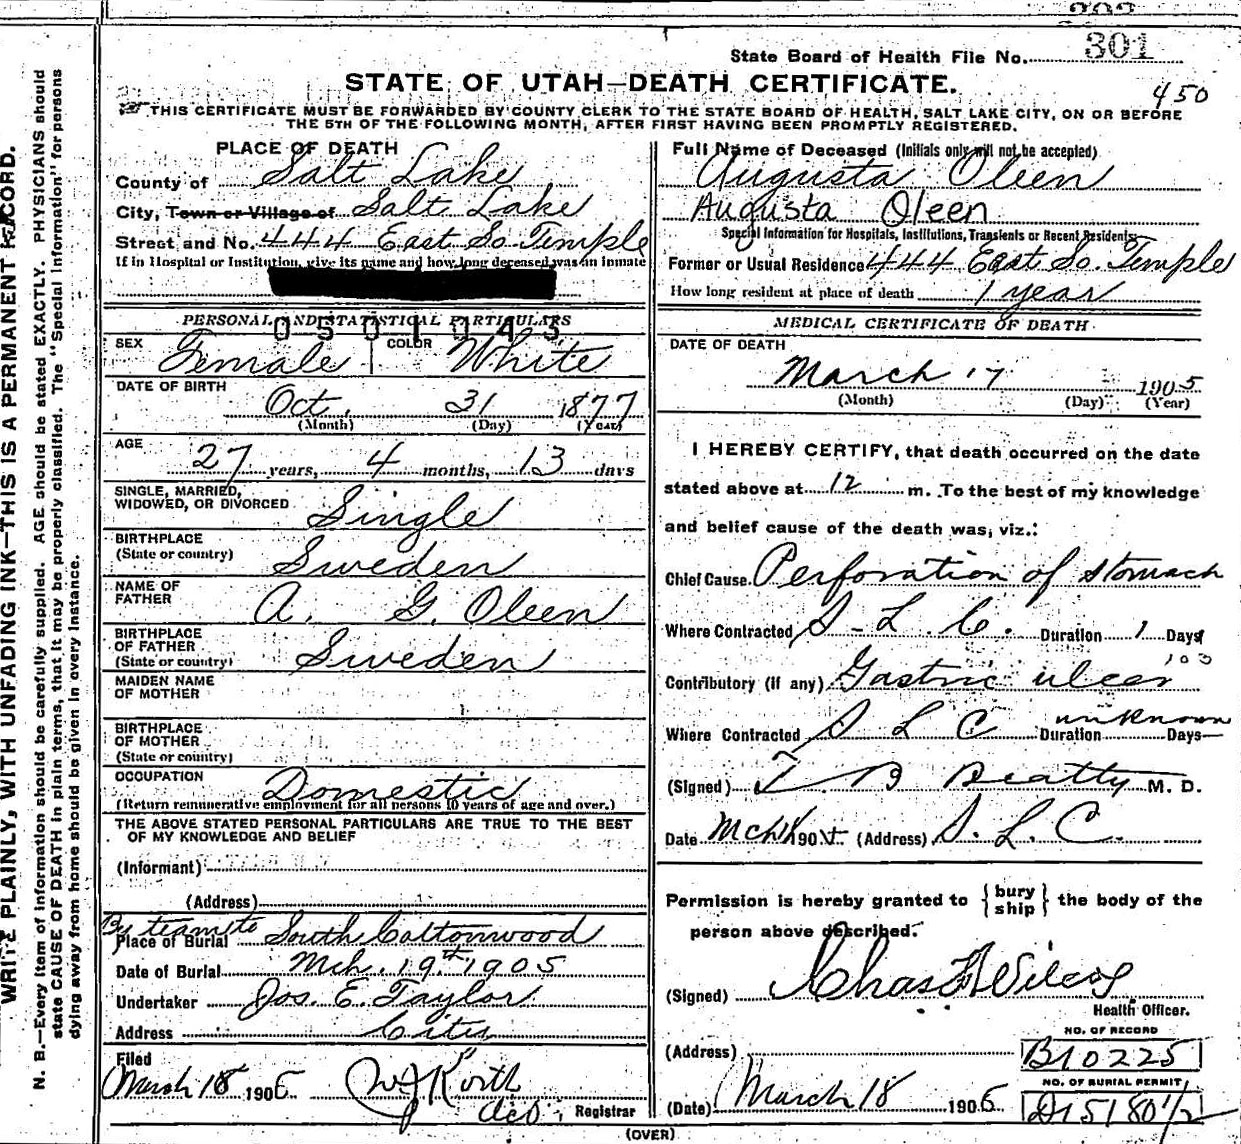 State Board of Health File No. 301
STATE OF UTAH—DEATH CERTIFICATE.
450
THIS CERTIFICATE MUST BE FORWARDED BY COUNTY CLERK TO THE STATE BOARD OF HEALTH, SALT LAKE CITY, ON OR BEFORE
THE 5TH OF THE FOLLOWING MONTH, AFTER FIRST HAVING BEEN PROMPTLY REGISTERED.
PLACE OF DEATH
County of Salt Lake
City, Town or Village of Salt Lake
Street and No. 444 East So. Temple
If in Hospital or Institution, give its name and how long deceased was an inmate
PERSONAL AND STATISTICAL PARTICULARS
0501043
SEX Female COLOR White
DATE OF BIRTH
Oct. 31 1877
(Month) (Day) (Year)
AGE
27 years, 4 months, 13 days
SINGLE, MARRIED,
WIDOWED, OR DIVORCED Single
BIRTHPLACE
(State or country) Sweden
NAME OF
FATHER A. G. Oleen
BIRTHPLACE
OF FATHER
(State or country) Sweden
MAIDEN NAME
OF MOTHER
BIRTHPLACE
OF MOTHER
(State or country)
OCCUPATION Domestic
(Return remunerative employment for all persons 10 years of age and over.)
THE ABOVE STATED PERSONAL PARTICULARS ARE TRUE TO THE BEST
OF MY KNOWLEDGE AND BELIEF
(Informant)
(Address)
By team to
Place of Burial South Cottonwood
Date of Burial Mch. 19th 1905
Undertaker Jos. E. Taylor
Address City
Filed
March 18 1905
Registrar
Full Name of Deceased (Initials only will not be accepted)
Augusta Oleen
Augusta Oleen
Special Information for Hospitals, Institutions, Transients or Recent Residents
Former or Usual Residence 444 East So. Temple
How long resident at place of death 1 year
MEDICAL CERTIFICATE OF DEATH
DATE OF DEATH
March 17 1905
(Month) (Day) (Year)
I HEREBY CERTIFY, that death occurred on the date
stated above at 12 m. To the best of my knowledge
and belief cause of the death was, viz.:
Chief Cause. Perforation of stomach
Where Contracted S. L. C. Duration 1 Days
103
Contributory (if any) Gastric ulcer
Where Contracted S L C Duration unknown Days
(Signed) T B Beatty M. D.
Date Mch 18 1905 (Address) S. L. C.
Permission is hereby granted to {bury
ship} the body of the
person above described.
(Signed) Chas Wilcox
Health Officer.
NO. OF RECORD
(Address) B10225
NO. OF BURIAL PERMIT
(Date) March 18 1905 D15180 1/2
(OVER)
WRITE PLAINLY, WITH UNFADING INK—THIS IS A PERMANENT RECORD.
N. B.—Every item of information should be carefully supplied. AGE should be stated EXACTLY. PHYSICIANS should
state CAUSE OF DEATH in plain terms, that it may be properly classified. The "Special Information" for persons
dying away from home should be given in every instance.